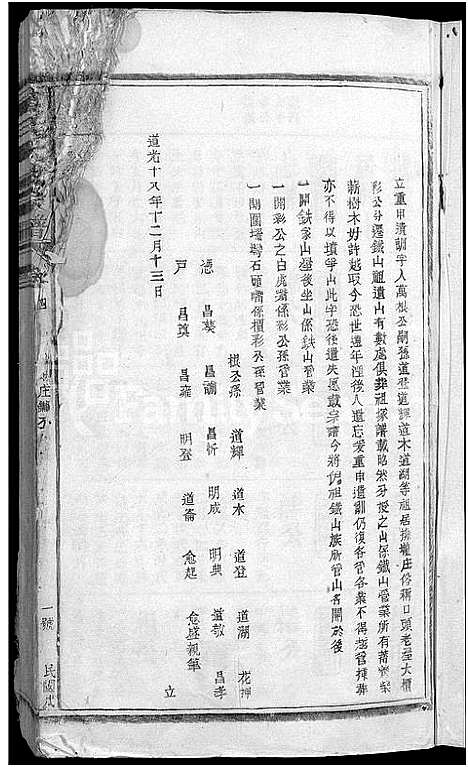 立重申清訓字人萬根公嗣孫道登道輝道木道湖等祖居撿瓏庄俗稱口頭老屋大櫃
彩公分遷鐵山祖遺山有數處俱葬祖塚譜載昭然分授之山係鐵山管業所有蓄柴
薪樹木毋許越取今恐世遠年湮後人遺忘爰重申遺訓仍復各管各業不得越管揷葬
亦不得以墳爭山此字恐後遺失愿載宗譜今將祖鐵山族所管山名開於後
一開鉄家山屋後坐山係鉄山管業
一開彩公之白虎嘴係彩公孫管業
一開團塆石頭嘴係櫃彩公孫管業
根公孫 道輝 道木 道登 道湖 花押
憑 昌葵 昌謝 昌析 明成 明典 道敬 昌孝
戸 昌奠 昌雍 明登 道崙 愈起 愈盛親筆
立
道光十八年十二月十三日
四
一號
民國戊